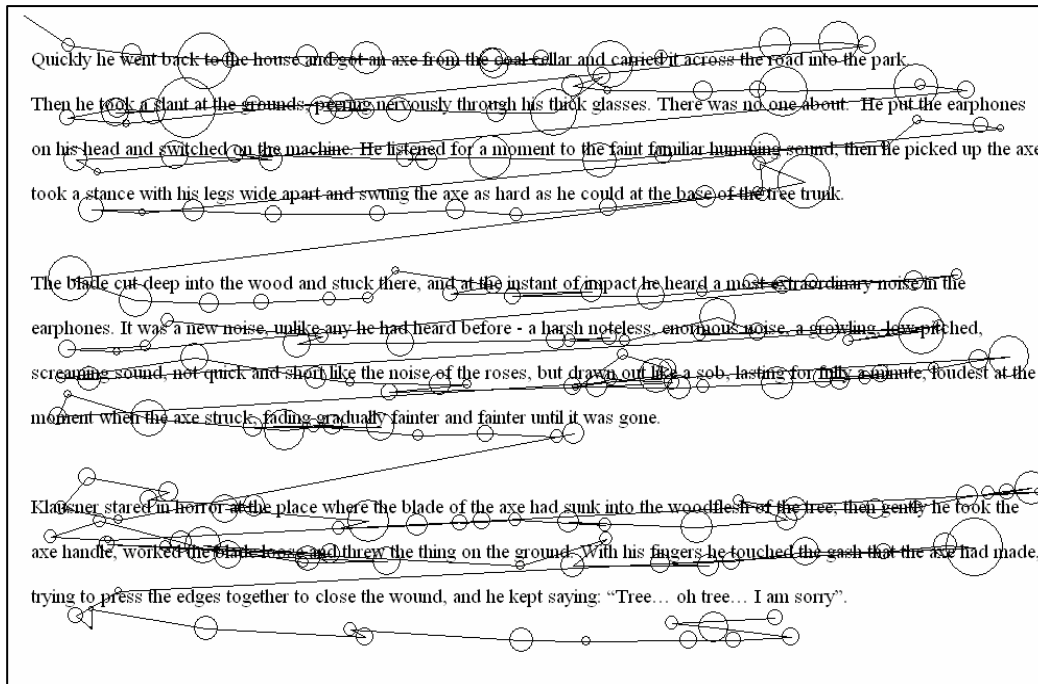 Quickly he went back to the house and got an axe from the coal cellar and carried it across the road into the park.
Then he took a slant at the grounds, peering nervously through his thick glasses. There was no one about. He put the earphones
on his head and switched on the machine. He listened for a moment to the faint familiar humming sound; then he picked up the axe
took a stance with his legs wide apart and swung the axe as hard as he could at the base of the tree trunk.
The blade cut deep into the wood and stuck there, and at the instant of impact he heard a most extraordinary noise in the
earphones. It was a new noise, unlike any he had heard before - a harsh noteless, enormous noise, a growling, low pitched,
screaming sound, not quick and short like the noise of the roses, but drawn out like a sob, lasting for fully a minute, loudest at the
moment when the axe struck, fading gradually fainter and fainter until it was gone.
Klausner stared in horror at the place where the blade of the axe had sunk into the woodflesh of the tree; then gently he took the
axe handle, worked the blade loose and threw the thing on the ground. With his fingers he touched the gash that the axe had made,
trying to press the edges together to close the wound, and he kept saying: “Tree… oh tree… I am sorry”.